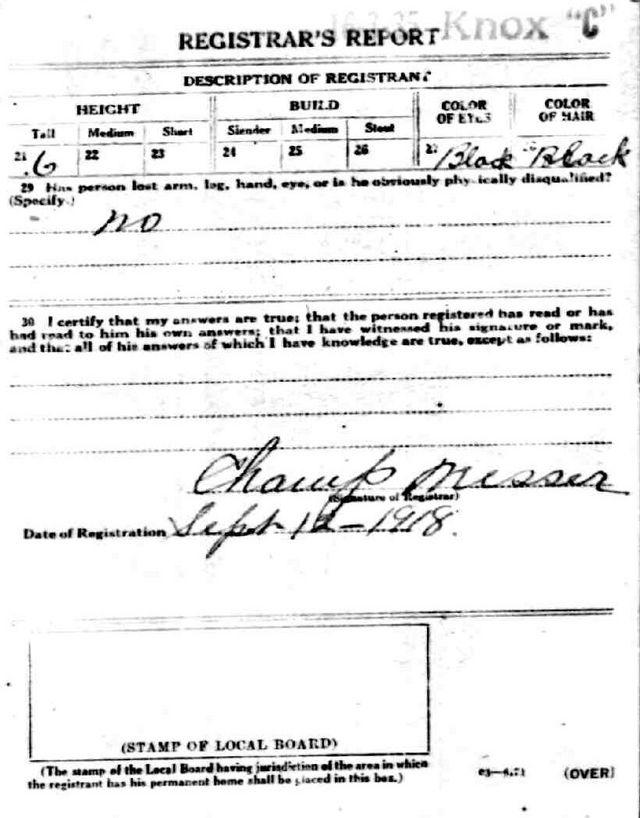 16-3-35- Knox "C"
REGISTRAR'S REPORT
DESCRIPTION OF REGISTRANT
HEIGHT BUILD COLOR OF EYES COLOR OF HAIR
Tall Medium Short Slender Medium Stout
21 6 22 23 24 25 26 27 Black Black
29 Has person lost arm, leg, hand, eye, or is he obviously physically disqualified?
(Specify.)
no
30 I certify that my answers are true; that the person registered has read or has
had read to him his own answers; that I have witnessed his signature or mark,
and that all of his answers of which I have knowledge are true, except as follows:
Champ Messer
(Signature of Registrar)
Date of Registration Sept 12-1918.
(STAMP OF LOCAL BOARD)
(The stamp of the Local Board having jurisdiction of the area in which
the registrant has his permanent home shall be placed in this box.)
(OVER)